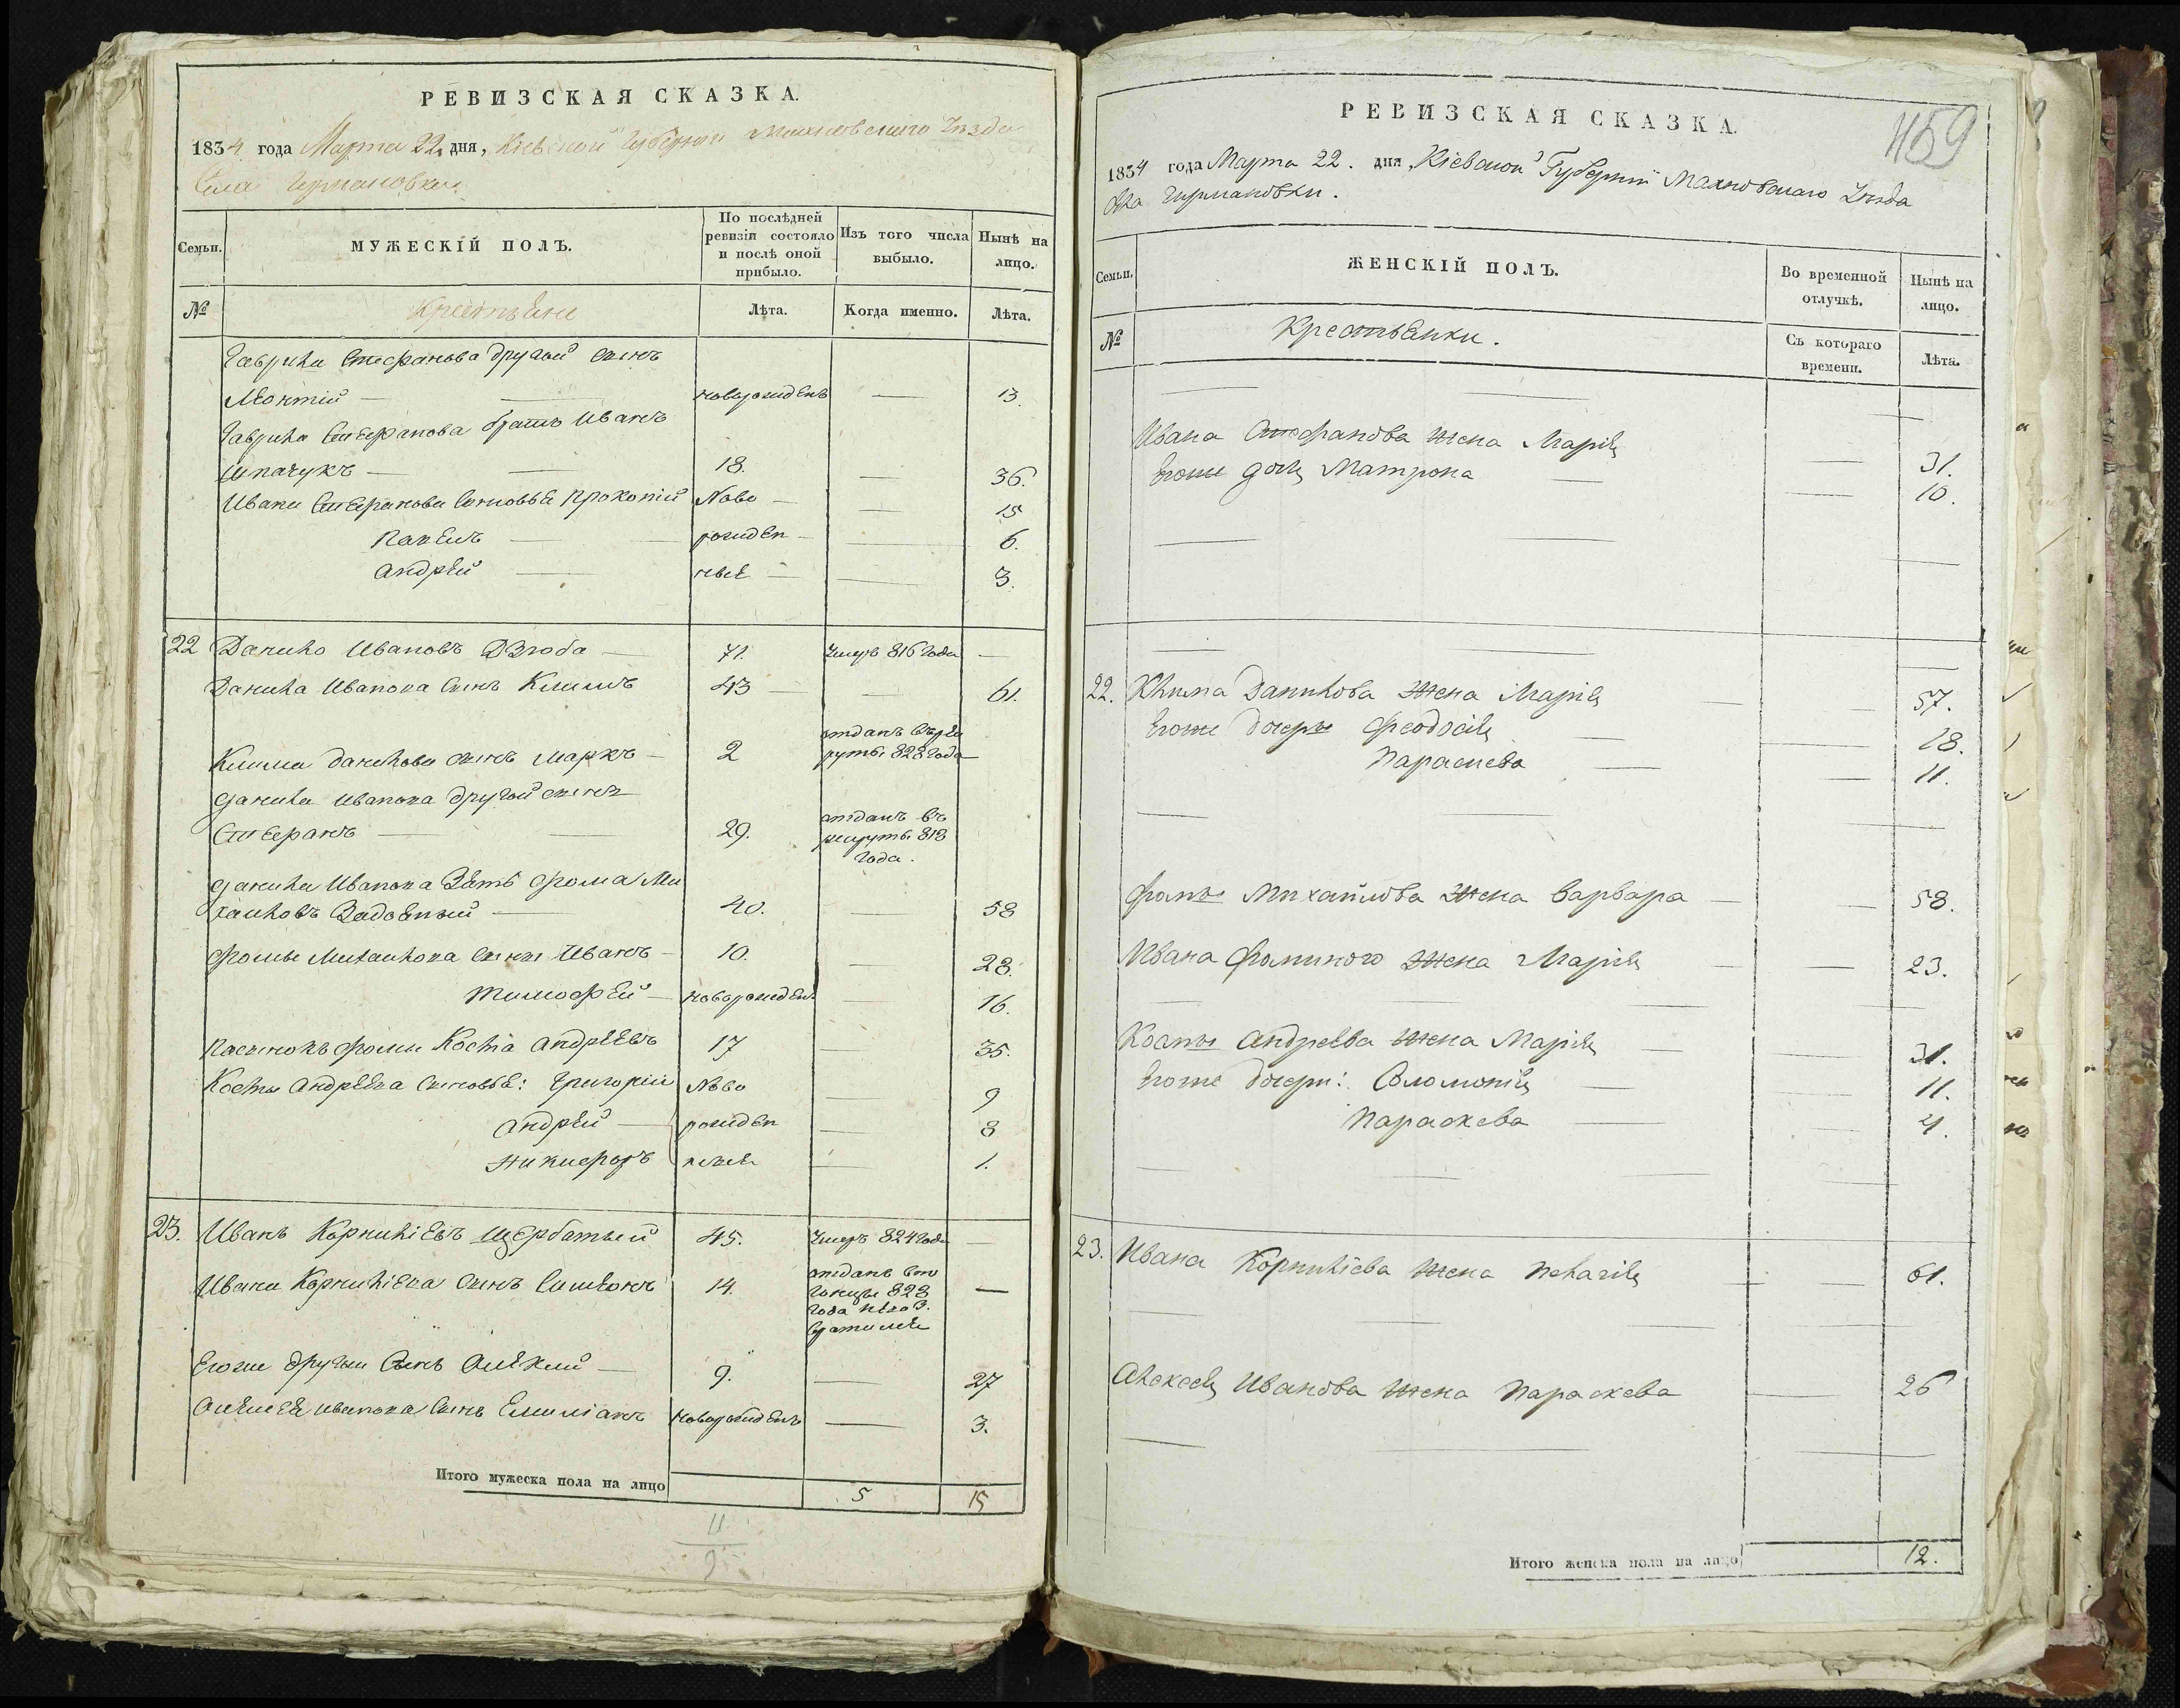 РЕВИЗСКАЯ СКАЗКА.
1834 года Марта 22 дня, Кіевской Губерніи Махновскаго Уѣзда
Села Чурмановки
Семьи. МУЖЕСКІЙ ПОЛЪ. По послѣдней ревизіи состояло и послѣ оной прибыло. Изъ того числа выбыло. Нынѣ на лицо.
№ Крестьяне Лѣта. Когда именно. Лѣта.
Гаврила Стефанова другой сынъ
Леонтій — новорожденъ — 13.
Гаврила Стефанова братъ Иванъ
Шпачукъ — 18. — 36.
Ивана Стефанова сыновья Прокопій Ново — 15
— рожден — 6.
Андрей — ные — 3.
22 Данило Ивановъ Дзюба — 71. умеръ 816 года —
Данила Иванова сынъ Климъ 43 — 61.
Клима Данилова сынъ Марко — 2 отданъ въ рекруты 828 года
Данила Иванова другой сынъ
Стефанъ — 29. отданъ въ рекруты 818 года.
Данила Иванова Зять Фома Ми
хайловъ Задояный — 40. — 58
Фомы Михайлова сынъ Иванъ — 10. — 28.
Тимофей — новорожденъ — 16.
Пасынокъ Фомы Костя Андреевъ 17 — 35.
Косты Андреева сыновья: Григорій Ново — 9
Андрей — рожден — 8
Никифоръ ные — 1.
23. Иванъ Корниліевъ Щербатый 45. умеръ 824 года —
Ивана Корниліева сынъ Симеонъ 14. отданъ 828 года —
Егоже другой сынъ Алексій — 9. — 27
Алексея Иванова сынъ Емиліанъ новорожденъ — 3.
Итого мужеска пола на лицо 5 15
11
9
РЕВИЗСКАЯ СКАЗКА.
459
1834 года Марта 22. дня, Кіевской Губерніи Махновскаго Уѣзда
Села Чурмановки.
Семьи. ЖЕНСКІЙ ПОЛЪ. Во временной отлучкѣ. Нынѣ на лицо.
№ Крестьянки. Съ котораго времени. Лѣта.
Ивана Стефанова жена Марія — 31.
Егоже дочь Матрона — 10.
22. Клима Данилова жена Марія — 57.
Егоже дочери Феодосія — 18.
Параскева — 11.
Фомы Михайлова жена Варвара — 58.
Ивана Фоминого жена Марія — 23.
Косты Андреева жена Марія — 31.
Егоже дочери: Соломонія — 11.
Параскева — 4.
23. Ивана Корниліева жена Пелагія — 61.
Алексея Иванова жена Параскева — 26
Итого женска пола на лицо 12.